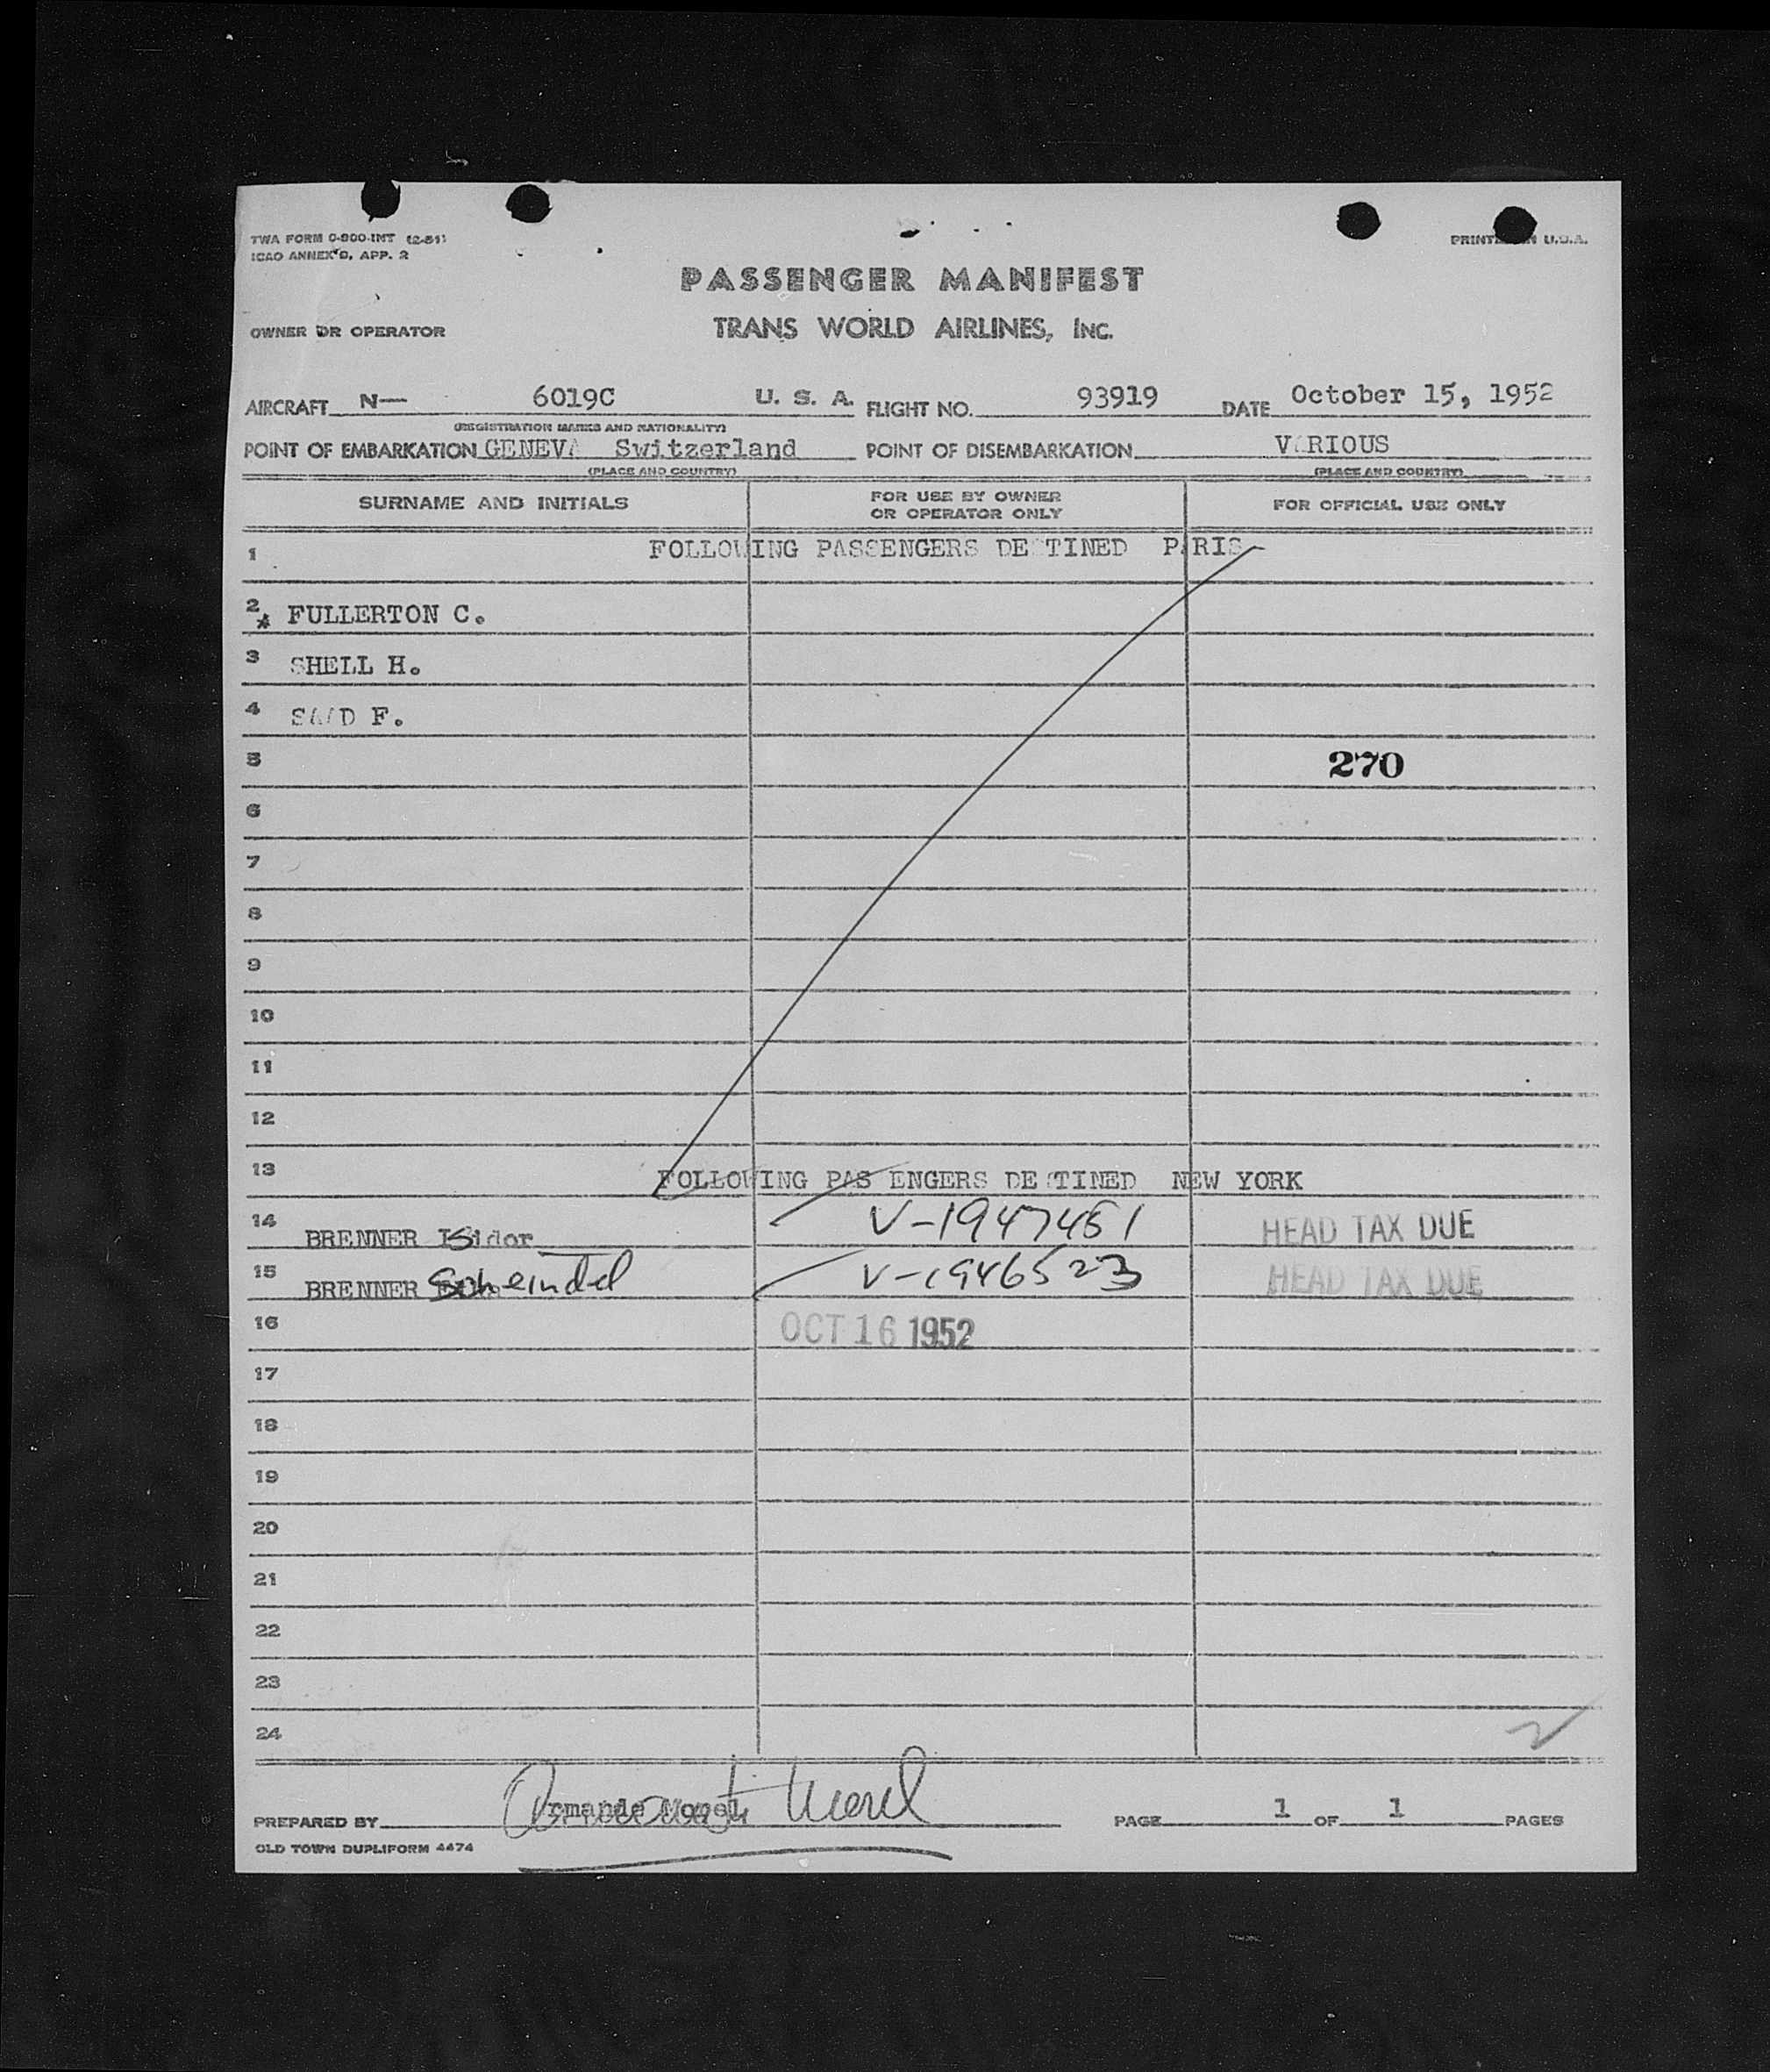 TWA FORM O-800-INT (2-51)
ICAO ANNEX 9, APP. 2
PRINTED IN U.S.A.
PASSENGER MANIFEST
OWNER OR OPERATOR TRANS WORLD AIRLINES, INC.
AIRCRAFT N— 6019C U. S. A. FLIGHT NO. 93919 DATE October 15, 1952
(REGISTRATION MARKS AND NATIONALITY)
POINT OF EMBARKATION GENEVA Switzerland POINT OF DISEMBARKATION VARIOUS
(PLACE AND COUNTRY) (PLACE AND COUNTRY)
SURNAME AND INITIALS FOR USE BY OWNER OR OPERATOR ONLY FOR OFFICIAL USE ONLY
1 FOLLOWING PASSENGERS DESTINED PARIS
2 * FULLERTON C.
3 SHELL H.
4 F.
5 270
6
7
8
9
10
11
12
13 FOLLOWING PASSENGERS DESTINED NEW YORK
14 BRENNER Isidor V-1947451 HEAD TAX DUE
15 BRENNER Scheindel V-1946523 HEAD TAX DUE
16 OCT 16 1952
17
18
19
20
21
22
23
24
PREPARED BY Morel PAGE 1 OF 1 PAGES
OLD TOWN DUPLIFORM 4474